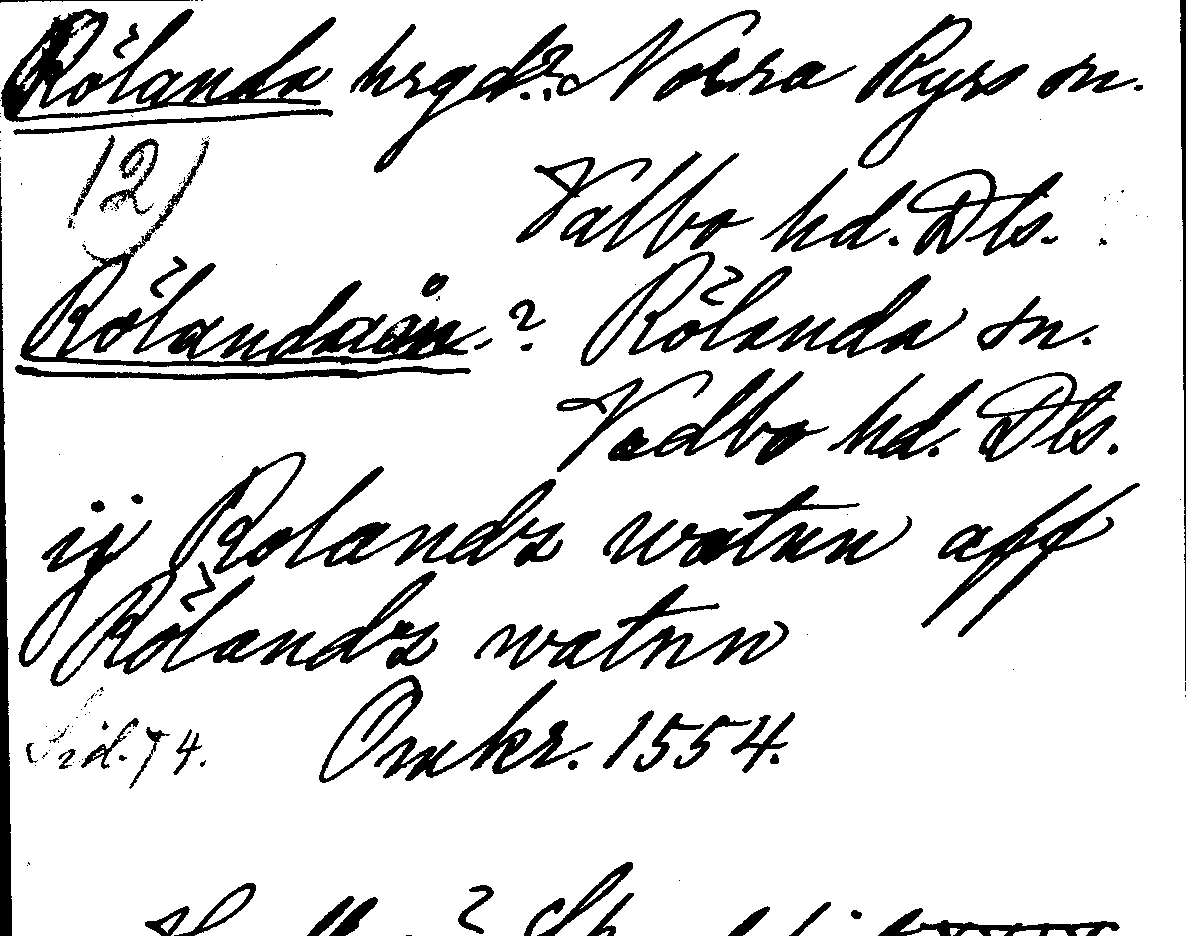 Rölanda hrgd.? Norra Ryrs sn.
12)
Valbo hd. Dls.
Rölandaån.? Rölanda sn.
Vedbo hd. Dls.
ij Rolandz watnn aff
Rölandz watnn
Sid. 74. Omkr. 1554.